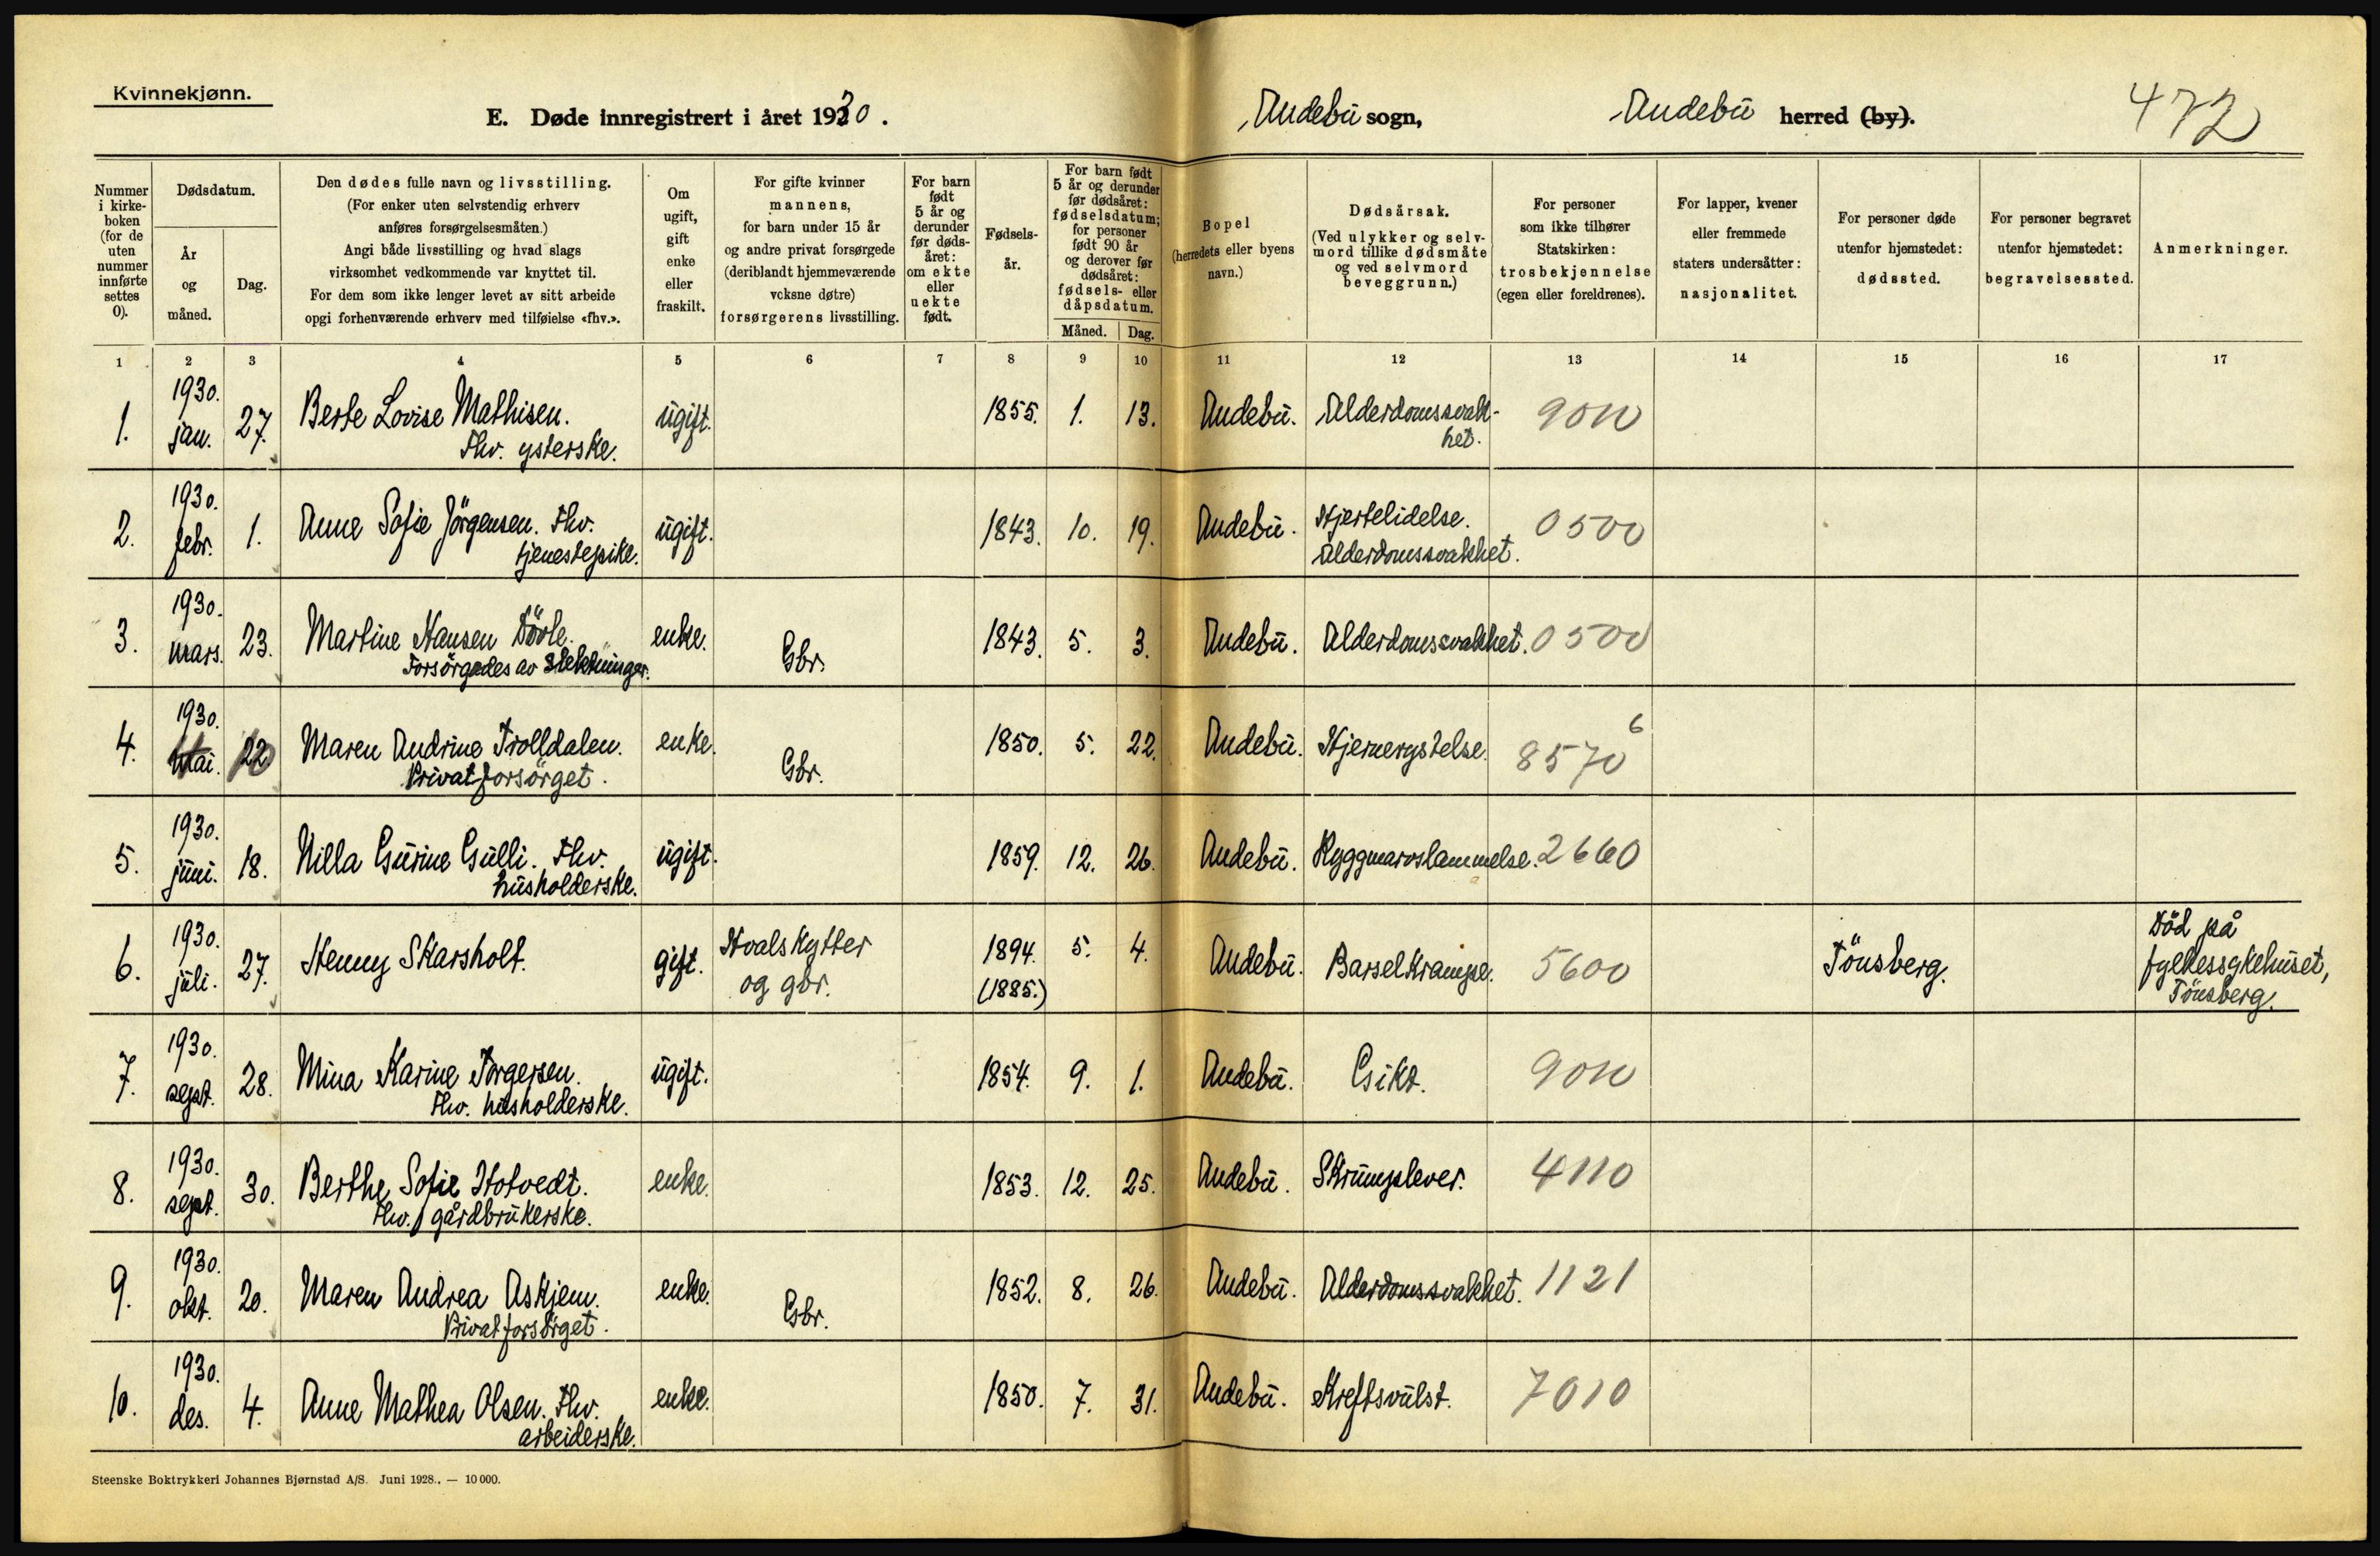 Kvinnekjønn.
E. Døde innregistrert i året 1930.
Andebu sogn,
Andebu herred (by).
472
Nummer i kirke-boken (for de uten nummer innførte settes 0).
Dødsdatum.
År og måned.
Dag.
Den dødes fulle navn og livsstilling.
(For enker uten selvstendig erhverv
anføres forsørgelsesmåten.)
Angi både livsstilling og hvad slags
virksomhet vedkommende var knyttet til.
For dem som ikke lenger levet av sitt arbeide
opgi forhenværende erhverv med tilføielse «fhv.».
Om ugift, gift enke eller fraskilt.
For gifte kvinner
mannens,
for barn under 15 år
og andre privat forsørgede
(deriblandt hjemmeværende
voksne døtre)
forsørgerens livsstilling.
For barn født 5 år og derunder før døds-året: om ekte eller uekte født.
Fødsels-år.
For barn født 5 år og derunder før dødsåret: fødselsdatum; for personer født 90 år og derover før dødsåret: fødsels- eller dåpsdatum.
Måned. Dag.
Bopel
(herredets eller byens
navn.)
Dødsårsak.
(Ved ulykker og selv-
mord tillike dødsmåte
og ved selvmord
beveggrunn.)
For personer
som ikke tilhører
Statskirken:
trosbekjennelse
(egen eller foreldrenes).
For lapper, kvener
eller fremmede
staters undersåtter:
nasjonalitet.
For personer døde
utenfor hjemstedet:
dødssted.
For personer begravet
utenfor hjemstedet:
begravelsessted.
Anmerkninger.
1 2 3 4 5 6 7 8 9 10 11 12 13 14 15 16 17
1. 1930. jan. 27. Berte Lovise Mathisen. Fhv. ysterske. ugift. 1855. 1. 13. Andebu. Alderdomssvak-het. 9010
2. 1930. febr. 1. Anne Sofie Jörgensen. Fhv. tjenestepike. ugift. 1843. 10. 19. Andebu. Hjertelidelse. Alderdomssvakhet. 0500
3. 1930. mars. 23. Martine Hansen Dövle. Forsörgedes av slektninger. enke. Gbr. 1843. 5. 3. Andebu. Alderdomssvakhet. 0500
4. 1930. mai. 22 Maren Andrine Trolldalen. Privat forsörget. enke. Gbr. 1850. 5. 22. Andebu. Hjernerystelse. 8570 6
5. 1930. juni. 18. Nilla Gurine Gulli. Fhv. husholderske. ugift. 1859. 12. 26. Andebu. Ryggmarvslammelse. 2660
6. 1930. juli. 27. Henny Skarsholt. gift. Hvalskytter og gbr. 1894. (1885.) 5. 4. Andebu. Barselkrampe. 5600 Tönsberg. Död på fylkessykehuset, Tönsberg.
7. 1930. sept. 28. Mina Karine Torgersen. Fhv. husholderske. ugift. 1854. 9. 1. Andebu. Gikt. 9010
8. 1930. sept. 30. Berthe Sofie Hotvedt. Fhv. gårdbrukerske. enke. 1853. 12. 25. Andebu. Skrumplever. 4110
9. 1930. okt. 20. Maren Andrea Askjem. Privat forsörget. enke. Gbr. 1852. 8. 26. Andebu. Alderdomssvakhet. 1121
10. 1930. des. 4. Anne Mathea Olsen. Fhv. arbeiderske. enke. 1850. 7. 31. Andebu. Kreftsvulst. 7010
Steenske Boktrykkeri Johannes Bjørnstad A/S. Juni 1928. — 10 000.